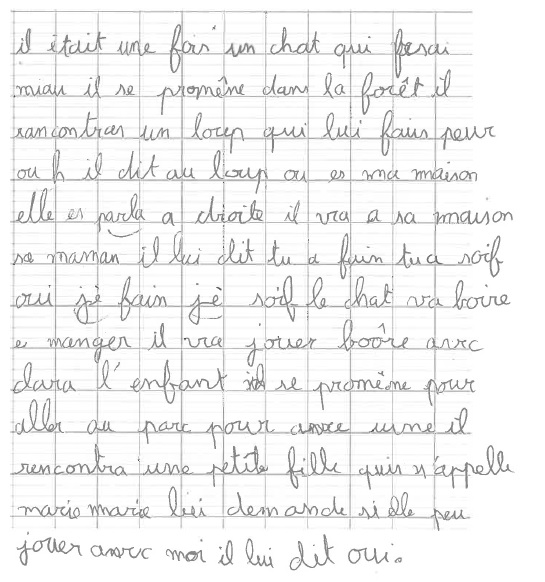 il était une fois un chat qui fesai
miau il se promêne dans la forêt il
rancontras un loup qui lui fais peur
ou h il dit au loup ou es ma maison
elle es parla a droite il vra a sa maison
sa maman il lui dit tu a fain tu a soif
oui jè fain jè soif le chat va boire
e manger il vra jouer boôre avrc
clara l'enfant se promêne pour
aller au parc pour il
rencontra une petite fille quis n'appelle
marie marie lui demande si elle peu
jouer avrc moi il lui dit oui.